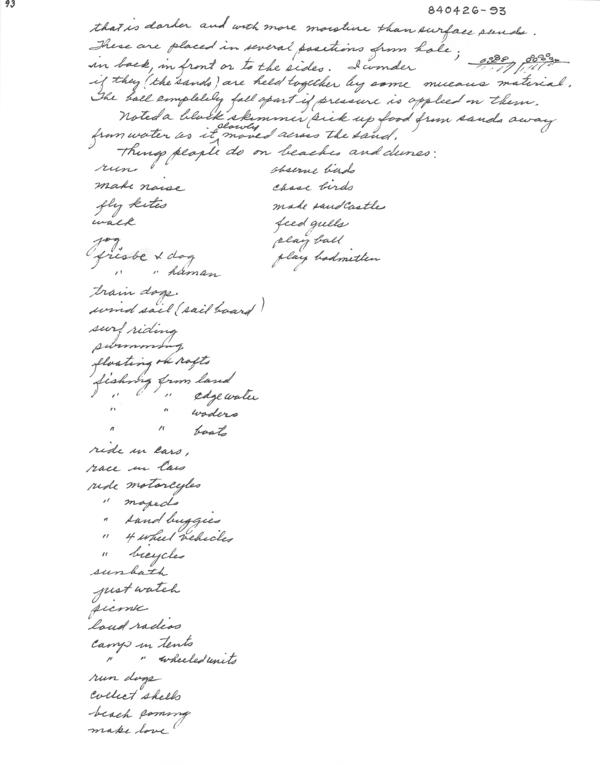 93
840426-93
that is darker and with more moisture than surface sands.
These are placed in several positions from hole;
in back, in front or to the sides. I wonder
if they (the sands) are held together by some mucous material.
The ball completely fall apart if pressure is applied on them.
Noted a black skimmer pick up food from sands away
from water as it slowly moved across the sand.
Things people do on beaches and dunes:
run
make noise
fly kites
walk
jog
frisbe & dog
" " human
train dogs.
wind sail (sail board)
surf riding
swimming
floating on rafts
fishing from land
" " edgewater
" " waders
" " boats
ride in cars,
race in cars
ride motorcyles
" mopeds
" sand buggies
" 4 wheel vehicles
" bicycles
sunbath
just watch
picnic
loud radios
camp in tents
" " wheeled units
run dogs
collect shells
beach coming
make love
observe birds
chase birds
make sandcastle
feed gulls
play ball
play badmitten